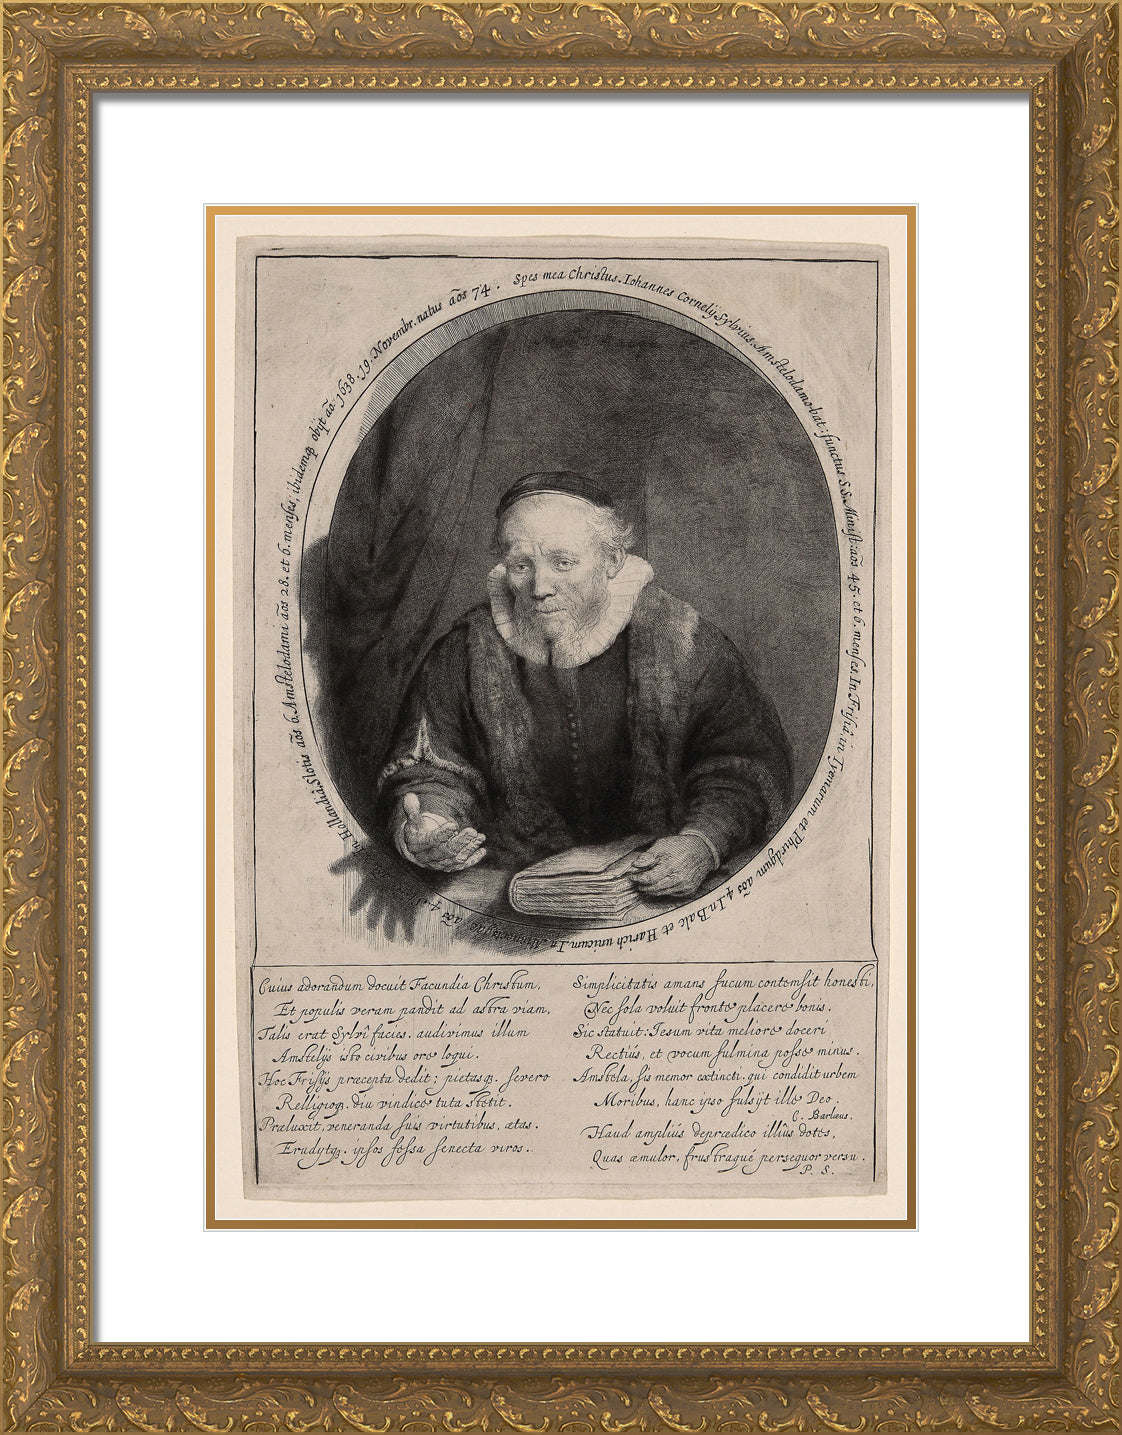 Spes mea Christus. Iohannes Cornelij Sylvius. Amstelodamo-bat: functus S.S. Minist: aōs 45. et 6. menses. In Frisiâ, in Tyemarum et Phirdgum aōs 4. In Balc et Harich unicum. In aōs 4. In Hollandiâ, Slotis aōs 6. Amstelodami aōs 28. et 6. menses; ibidemq, obijt ão: 1638. 19. Novembr. natus aōs 74.
Cuius adorandum docuit Facundia Christum,
Et populis veram pandit ad astra viam,
Talis erat Sylvî facies. audivimus illum
Amstelijs isto civibus ore loqui.
Hoc Frisijs præcepta dedit; pietasq. severo
Relligioq. diu vindice tuta stetit.
Præluxit, veneranda suis virtutibus, ætas.
Erudytq. ipsos fessa senecta viros.
Simplicitatis amans fucum contemsit honesti,
Nec sola voluit fronte placere bonis.
Sic statuit: Iesum vita meliore doceri
Rectiùs, et vocum fulmina posse minus.
Amstela, sis memor extincti. qui condidit urbem
Moribus, hanc ipso fulsijt ille Deo.
C. Barlæus.
Haud ampliús deprædico illíus dotes,
Quas æmulor, frustraque persequor versu.
P. S.